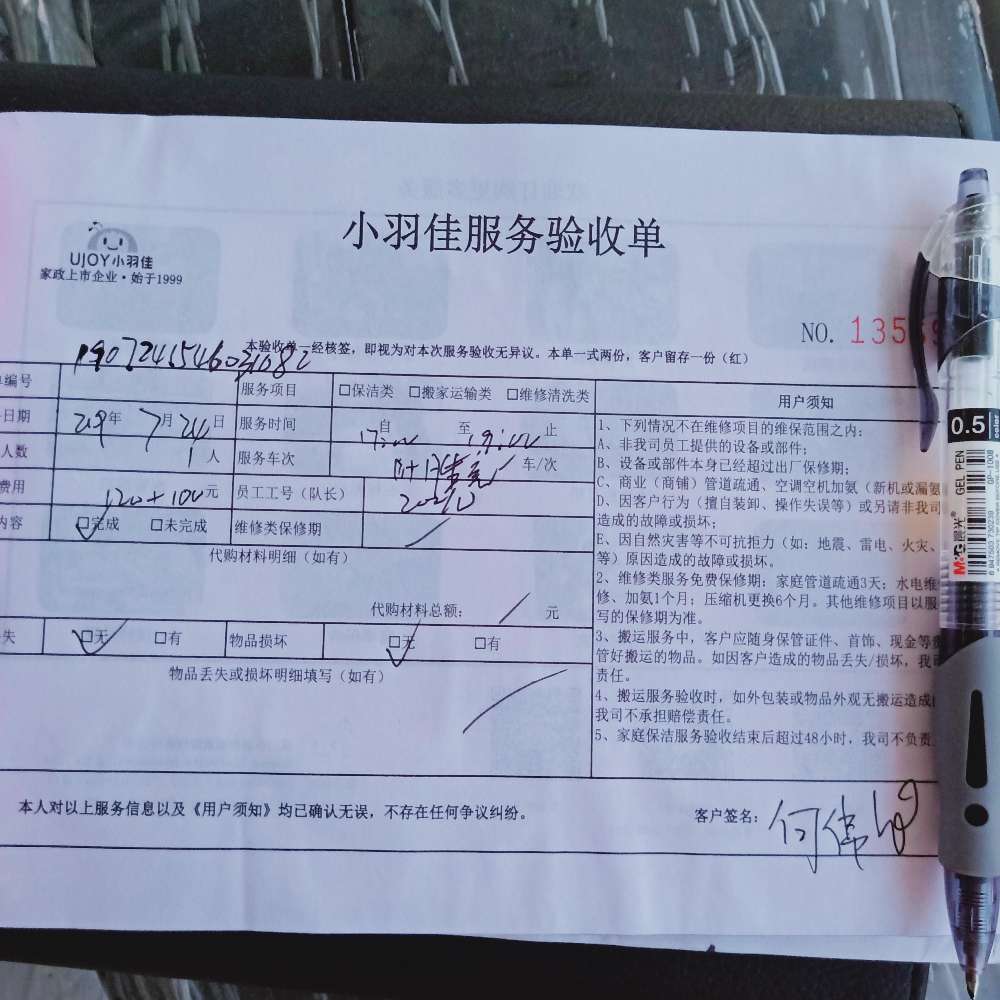 小羽佳服务验收单
UJOY小羽佳
家政上市企业·始于1999
NO. 135
本验收单一经核签，即视为对本次服务验收无异议。本单一式两份，客户留存一份（红）
编号 服务项目 □保洁类 □搬家运输类 □维修清洗类
日期 2019年 7月24日 服务时间 自 17:00 至 19:00 止
人数 1人 服务车次 车/次
费用 120+100元 员工工号（队长）
内容 □完成 □未完成 维修类保修期
代购材料明细（如有）
代购材料总额： 元
失 □无 □有 物品损坏 □无 □有
物品丢失或损坏明细填写（如有）
用户须知
1、下列情况不在维修项目的维保范围之内：
A、非我司员工提供的设备或部件；
B、设备或部件本身已经超过出厂保修期；
C、商业（商铺）管道疏通、空调空机加氨（新机或漏氨
D、因客户行为（擅自装卸、操作失误等）或另请非我司
造成的故障或损坏；
E、因自然灾害等不可抗拒力（如：地震、雷电、火灾、
等）原因造成的故障或损坏。
2、维修类服务免费保修期：家庭管道疏通3天；水电维
修、加氨1个月；压缩机更换6个月。其他维修项目以服
写的保修期为准。
3、搬运服务中，客户应随身保管证件、首饰、现金等
管好搬运的物品。如因客户造成的物品丢失/损坏，我
责任。
4、搬运服务验收时，如外包装或物品外观无搬运造成
我司不承担赔偿责任。
5、家庭保洁服务验收结束后超过48小时，我司不负责
本人对以上服务信息以及《用户须知》均已确认无误，不存在任何争议纠纷。
客户签名：
0.5
GEL PEN
GP-1008
M&G 晨光